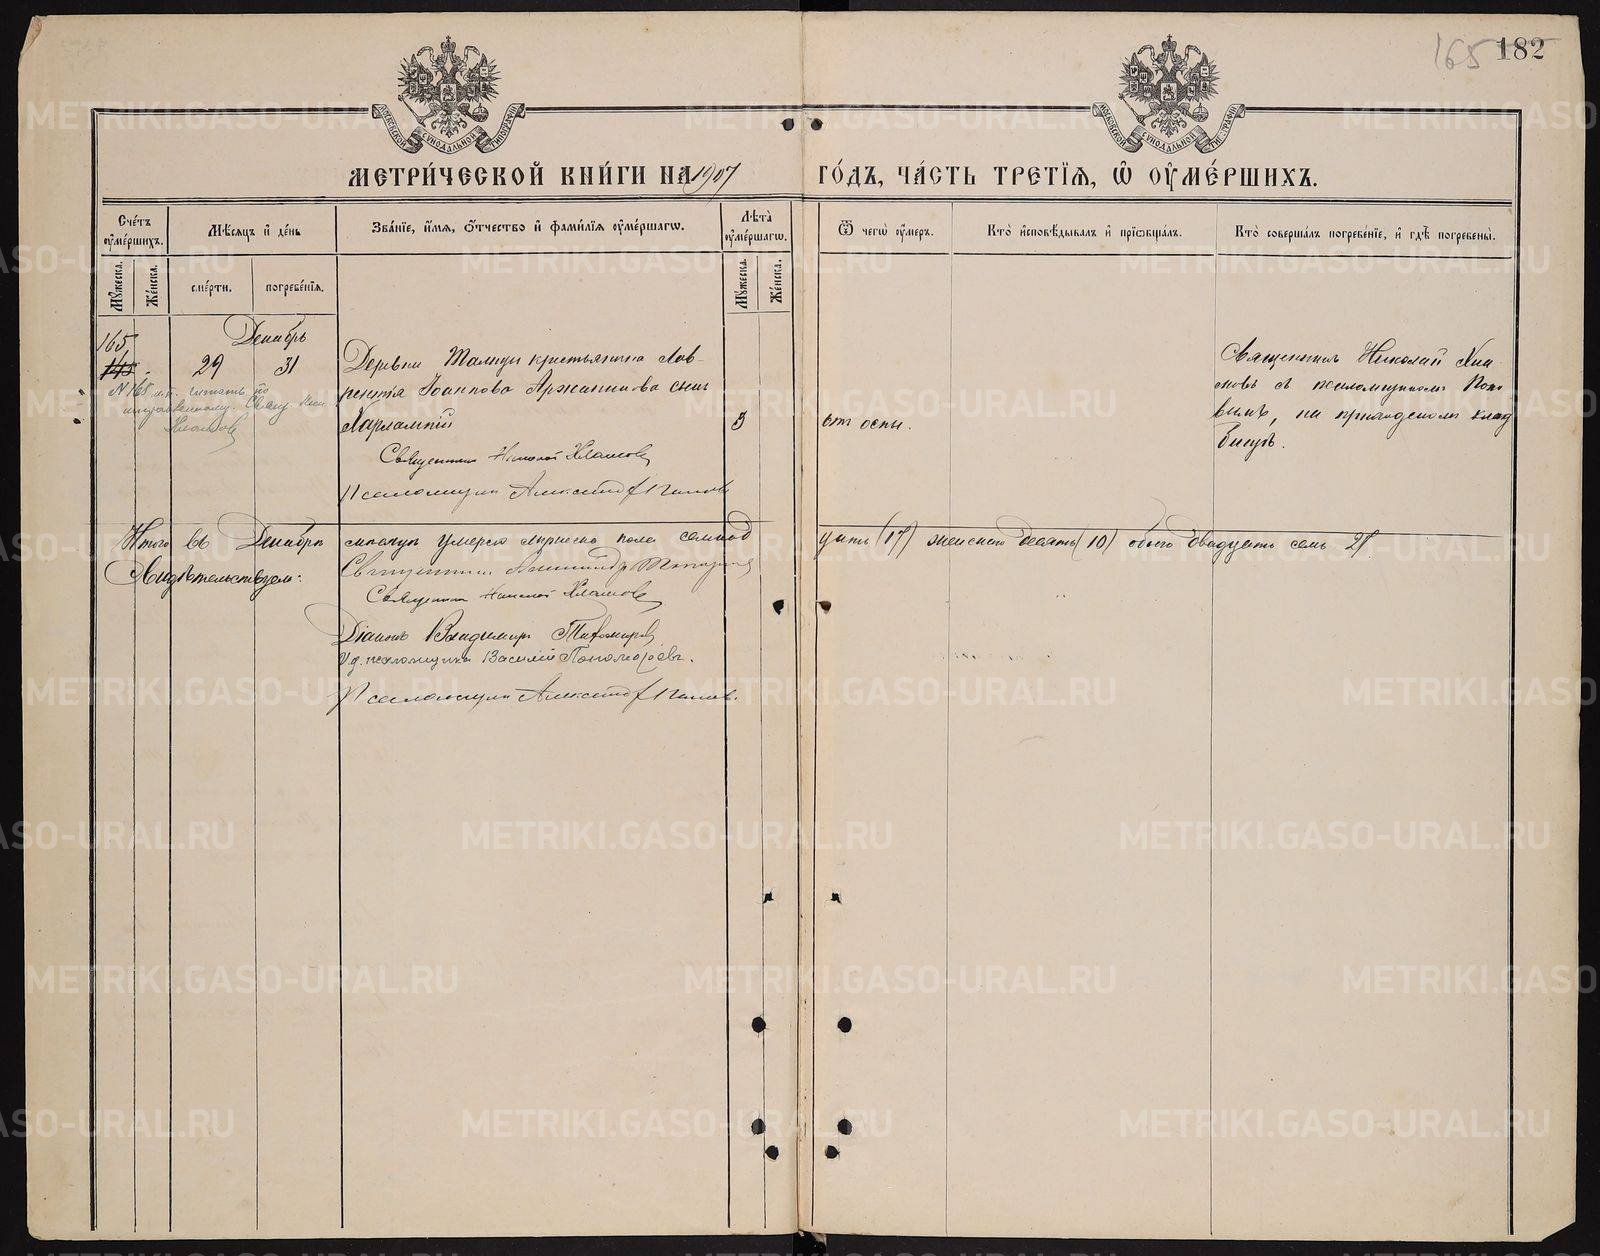 165 182
МОСКОВСКОЙ СѴНОДАЛЬНОЙ ТИПОГРАФІИ
МОСКОВСКОЙ СѴНОДАЛЬНОЙ ТИПОГРАФІИ
МЕТРИ́ЧЕСКОЙ КНИ́ГИ НА 1907 ГО́ДЪ, ЧА́СТЬ ТРЕТІЯ, Ѿ ОУМЕ́РШИХЪ.
Сче́тъ оуме́ршихъ.
Мѣсяцъ и де́нь
Зва́нїе, и́мя, о́тчество и фами́лїя оуме́ршагѡ.
Лѣта̀ оуме́ршагѡ.
Ѿ чегѡ̀ оу́меръ.
Кто̀ исповѣ́дывалъ и прїѡбща́лъ.
Кто̀ соверша́лъ погребе́нїе, и гдѣ̀ погребены̀.
Му́жеска.
Же́нска.
сме́рти.
погребе́нїя.
Му́жеска.
Же́нска.
165
Декабрь
29 31
Деревни Талицы крестьянина Лав-
рентія Іоаннова Аржанникова сынъ
Харлампій
3
отъ оспы.
Священникъ Николай Хла-
мовъ съ псаломщикомъ
на приходскомъ клад
бищѣ.
№ 165 читать по
исправленному. Свящ.
Священникъ Николай Хламовъ
Псаломщикъ Александръ
Итого въ Декабрѣ мѣсяцѣ умерло мужеска пола семнад
цать (17) женскаго десять (10) обоего двадцать семь 27
Свидѣтельствуемъ:
Священникъ Александръ
Священникъ Николай Хламовъ
Діаконъ Владимиръ Тихомировъ
И. д. псаломщика Василій Пономаревъ.
Псаломщикъ Александръ
METRIKI.GASO-URAL.RU